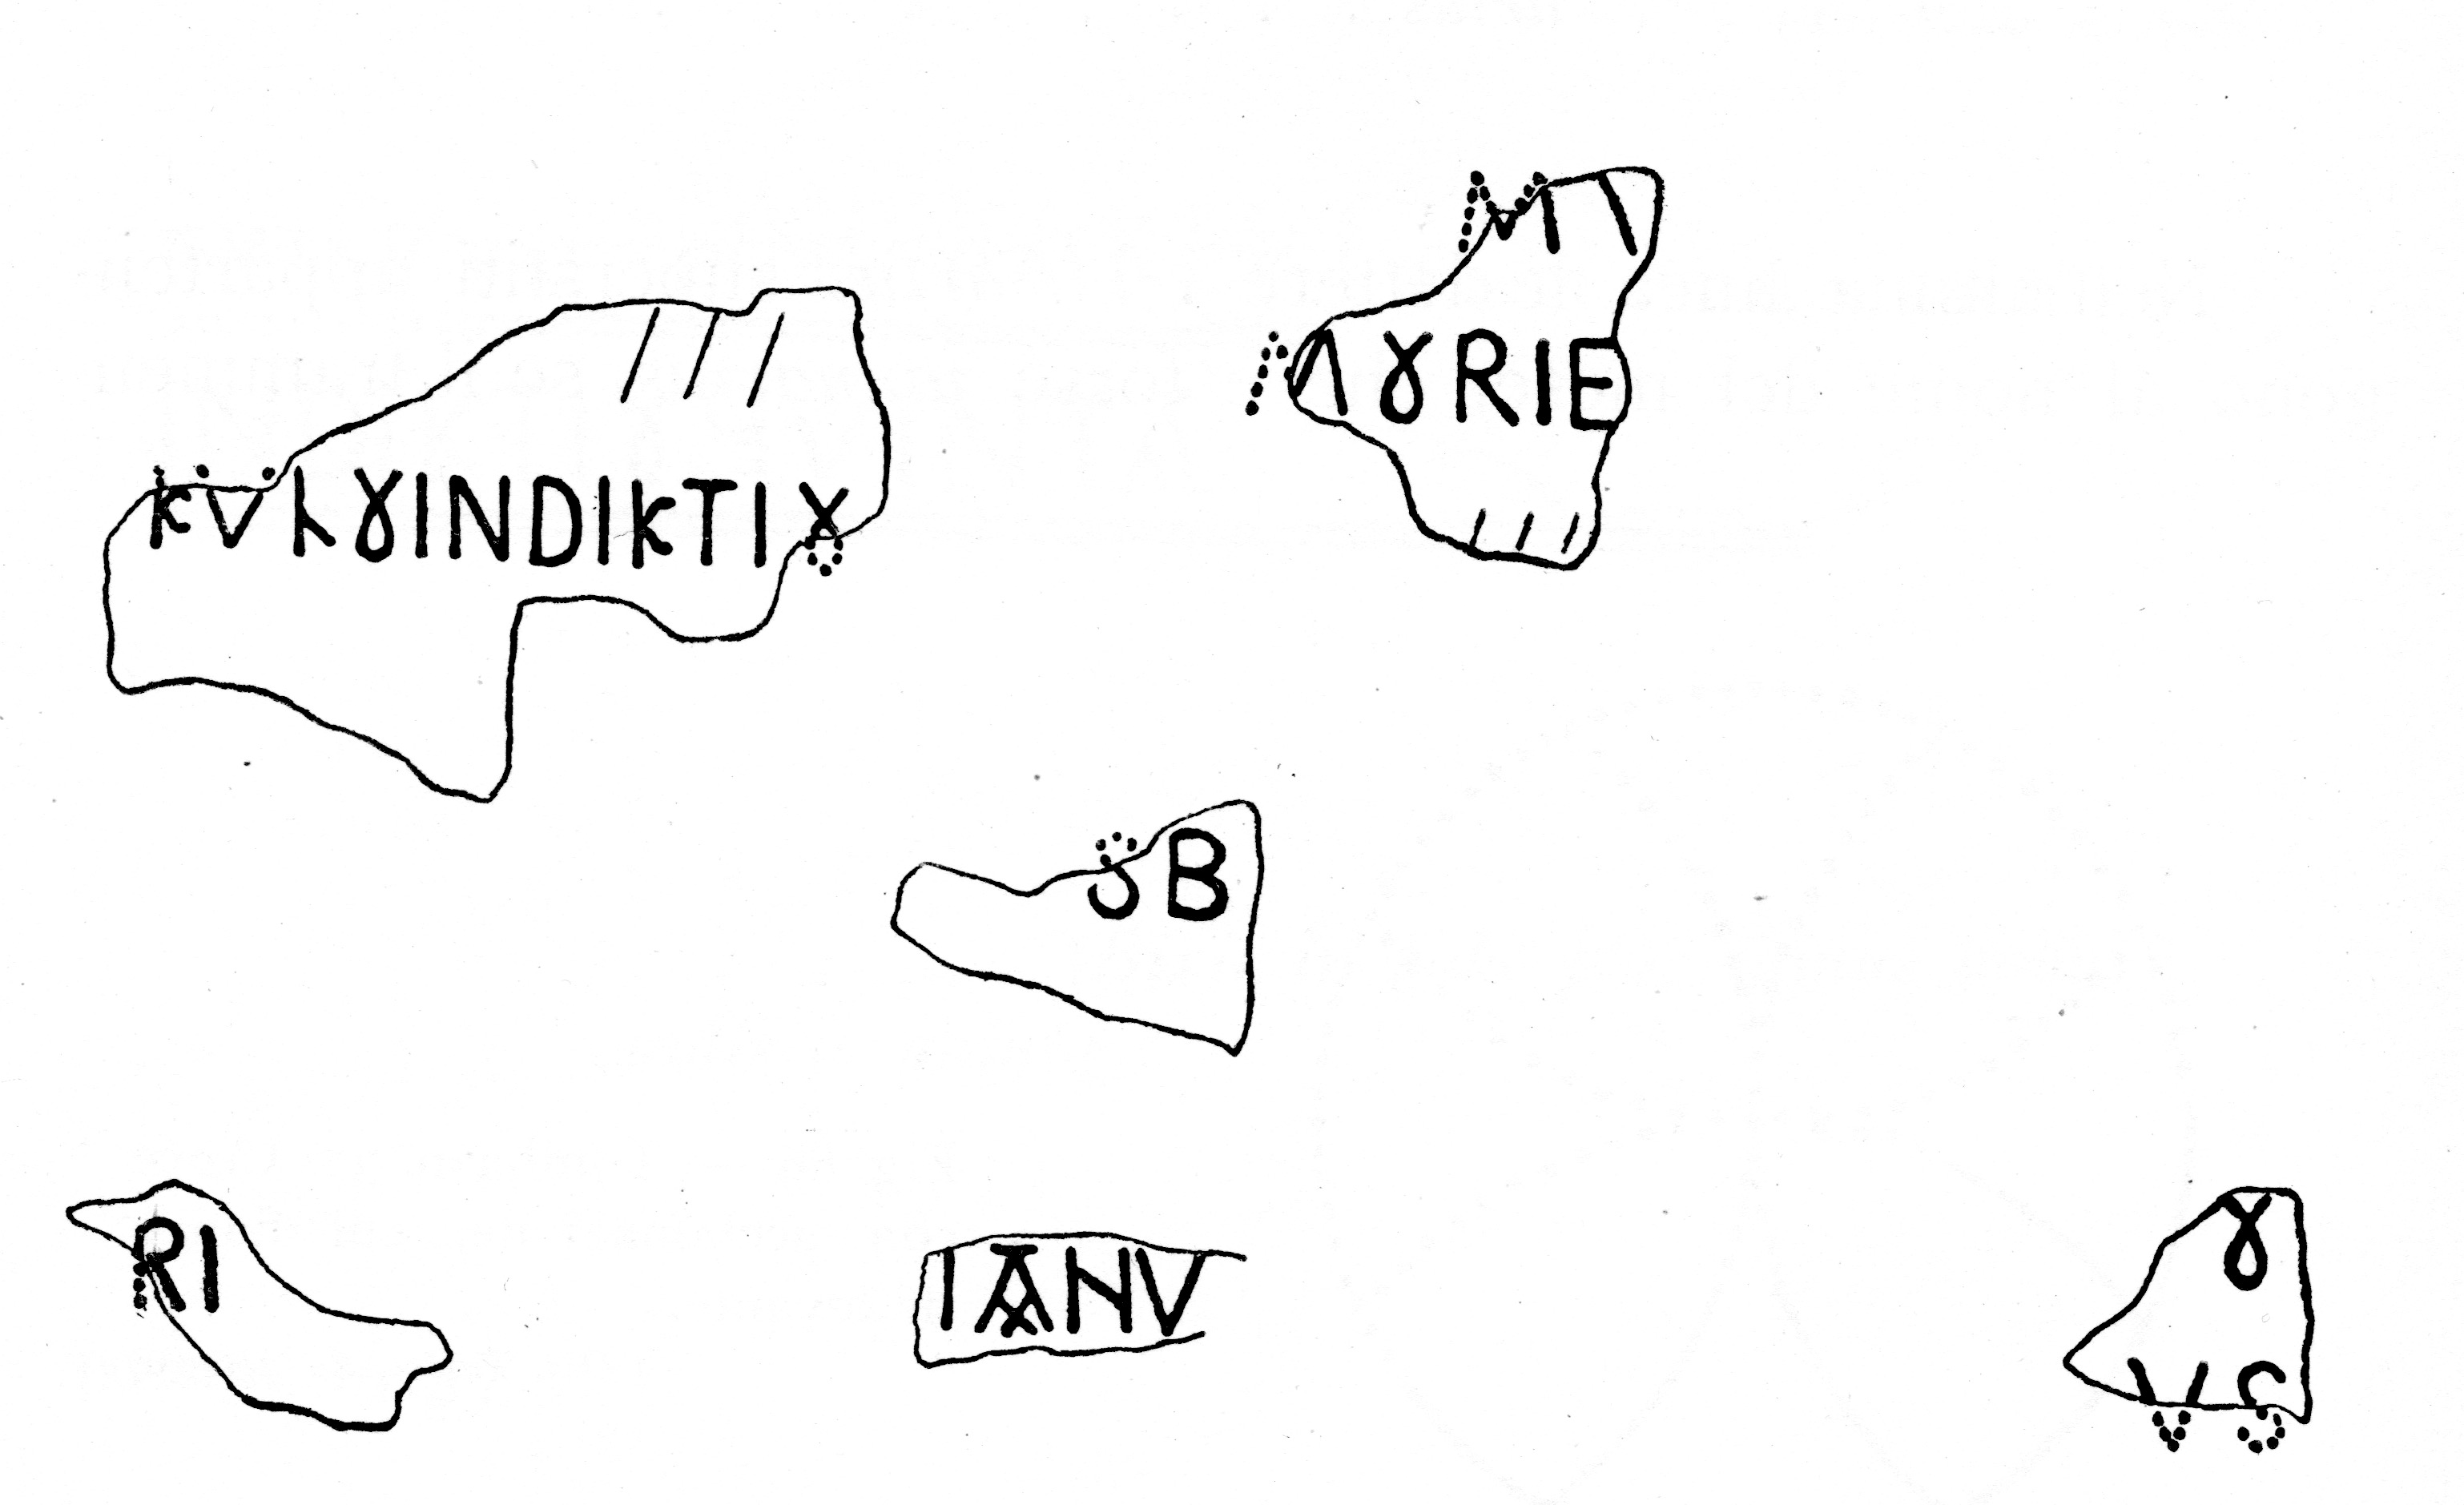 KVLȢINDIKTIȢ
M
MȢRIE
ȢB
RI
IANV
Ȣ
VS